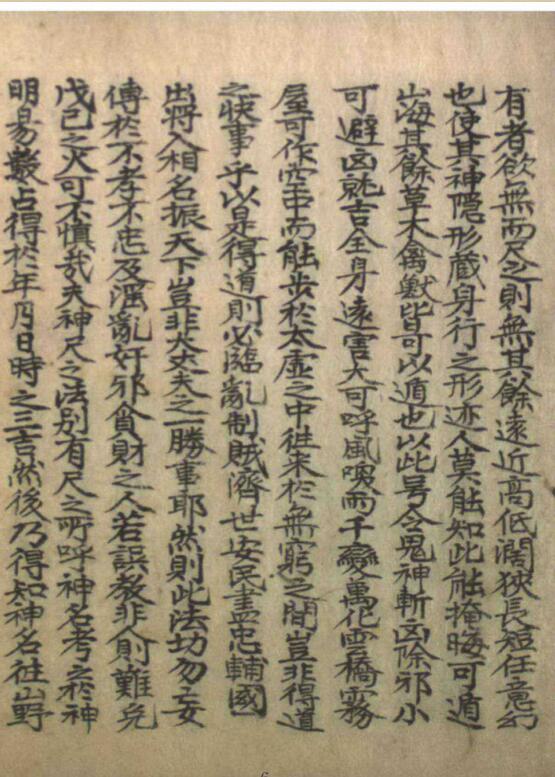 有者欲無而尺之則無其餘遠近高低濶狹長短任意幻
也使其神隱形蔵身行之形迹人莫能知此能掩晦可遁
山海其餘草木禽獸皆可以遁也以此号令鬼神斬凶除邪小
可避凶就吉全身遠害大可呼風喚雨千變萬化雲橋霧
屋可作空中而能步於太虛之中徃来於無窮之間豈非得道
之快事乎以是得道則必臨亂制賊濟世安民盡忠輔國
出將入相名振天下豈非大丈夫之一勝事耶然則此法切勿妄
傳於不孝不忠及淫亂奸邪貪財之人若誤教非人則難免
戊己之灾可不慎哉夫神尺之法別有尺之所呼神名考之於神
明易數占得於年月日時之三吉然後乃得知神名徃山野